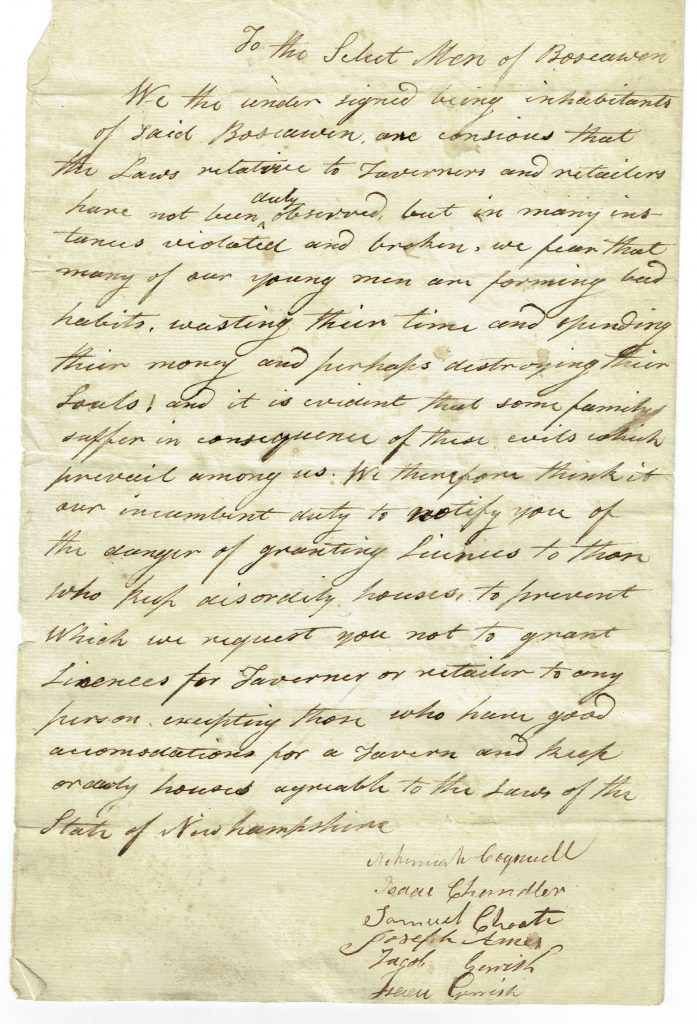 To the Select Men of Boscawen
We the under signed being inhabitants
of said Boscawen, are consious that
the Laws relative to Taverners and retailers
duly
have not been ^ observed, but in many ins-
tances violated and broken, we fear that
many of our young men are forming bad
habits, wasting their time and spending
their money and perhaps destroying their
Souls! and it is evident that some familys
suffer in consequence of these evils which
prevail among us. We therefore think it
our incumbent duty to notify you of
the danger of granting Licences to those
who keep disordily houses, to prevent
Which we request you not to grant
Licences for Taverner or retailer to any
person excepting those who have good
acomodations for a Tavern and keep
orderly houses agreable to the Laws of the
State of Newhampshire
Nehemiah Cogswell
Isaac Chandler
Samuel Choate
Joseph Ames
Jacob Gerrish
Gerrish